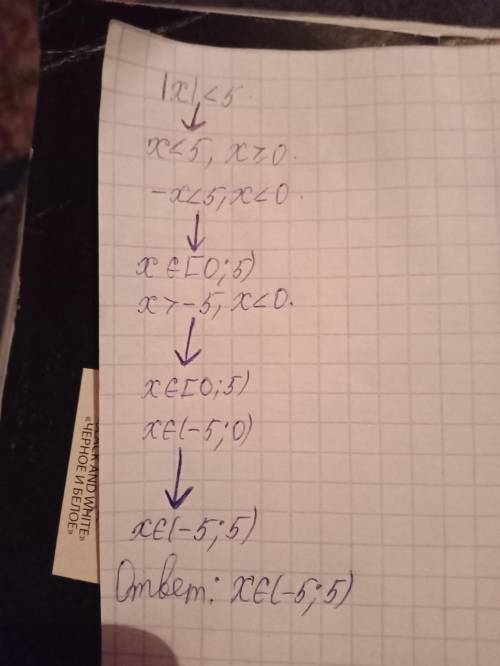 |x|<5.
x<5, x≥0.
-x<5, x<0.
x∈[0;5)
x>-5, x<0.
x∈[0;5)
x∈(-5;0)
x∈(-5;5)
Ответ: x∈(-5;5)
BLACK AND WHITE»
«ЧЕРНОЕ И БЕЛОЕ»